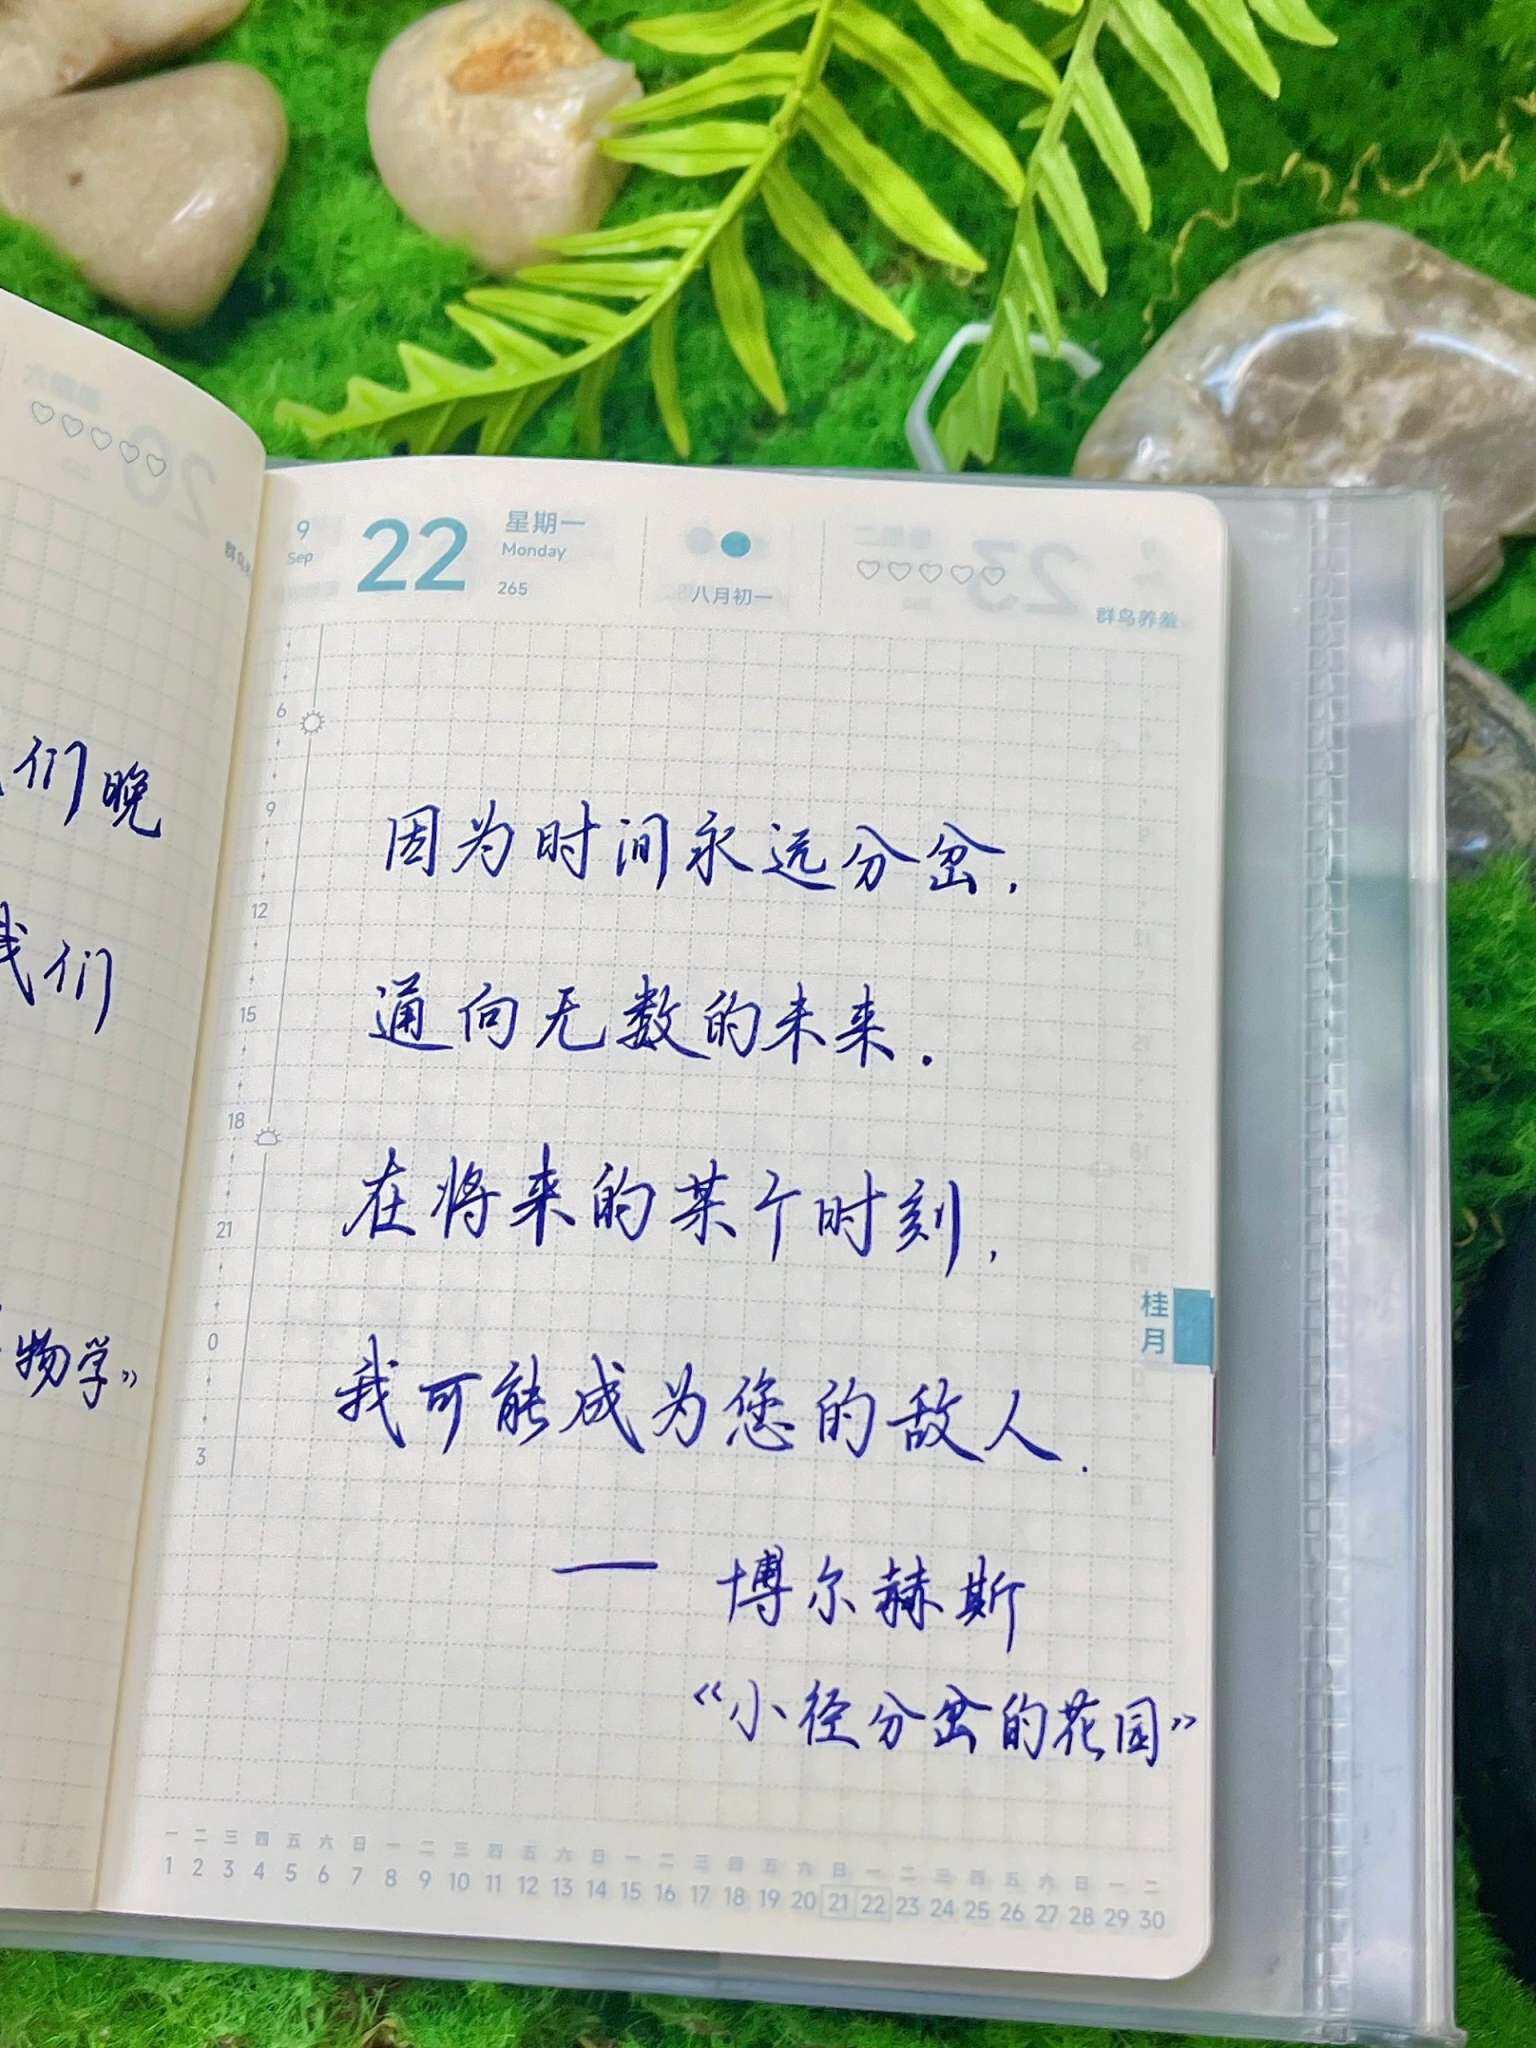 们晚
我们
物学”
9
Sep
22
星期一
Monday
265
八月初一
群鸟养羞
6
9
12
15
18
21
0
3
因为时间永远分岔，
通向无数的未来．
在将来的某个时刻，
我可能成为您的敌人．
— 博尔赫斯
“小径分岔的花园”
桂月
一 二 三 四 五 六 日 一 二 三 四 五 六 日 一 二 三 四 五 六 日 一 二 三 四 五 六 日 一 二
1 2 3 4 5 6 7 8 9 10 11 12 13 14 15 16 17 18 19 20 21 22 23 24 25 26 27 28 29 30